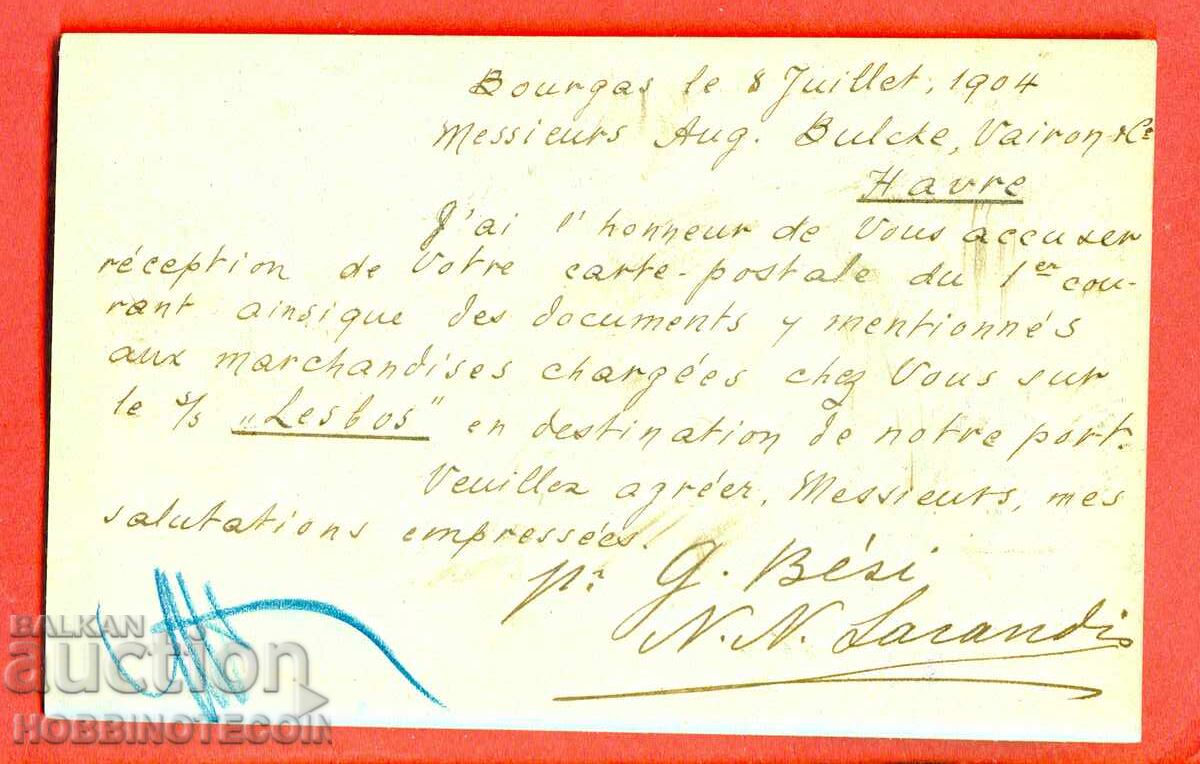 Bourgas le 8 Juillet, 1904
Messieurs Aug. Bulcke, Vairon & Cie
Havre
J'ai l'honneur de Vous accuser
réception de Votre carte-postale du 1er cou-
rant ainsique des documents y mentionnés
aux marchandises chargées chez Vous sur
le s/s "Lesbos" en destination de notre port.
Veuillez agréer, Messieurs, mes
salutations empressées.
pr G. Bési
N. N.
BALKAN
auction
HOBBINOTECOIN